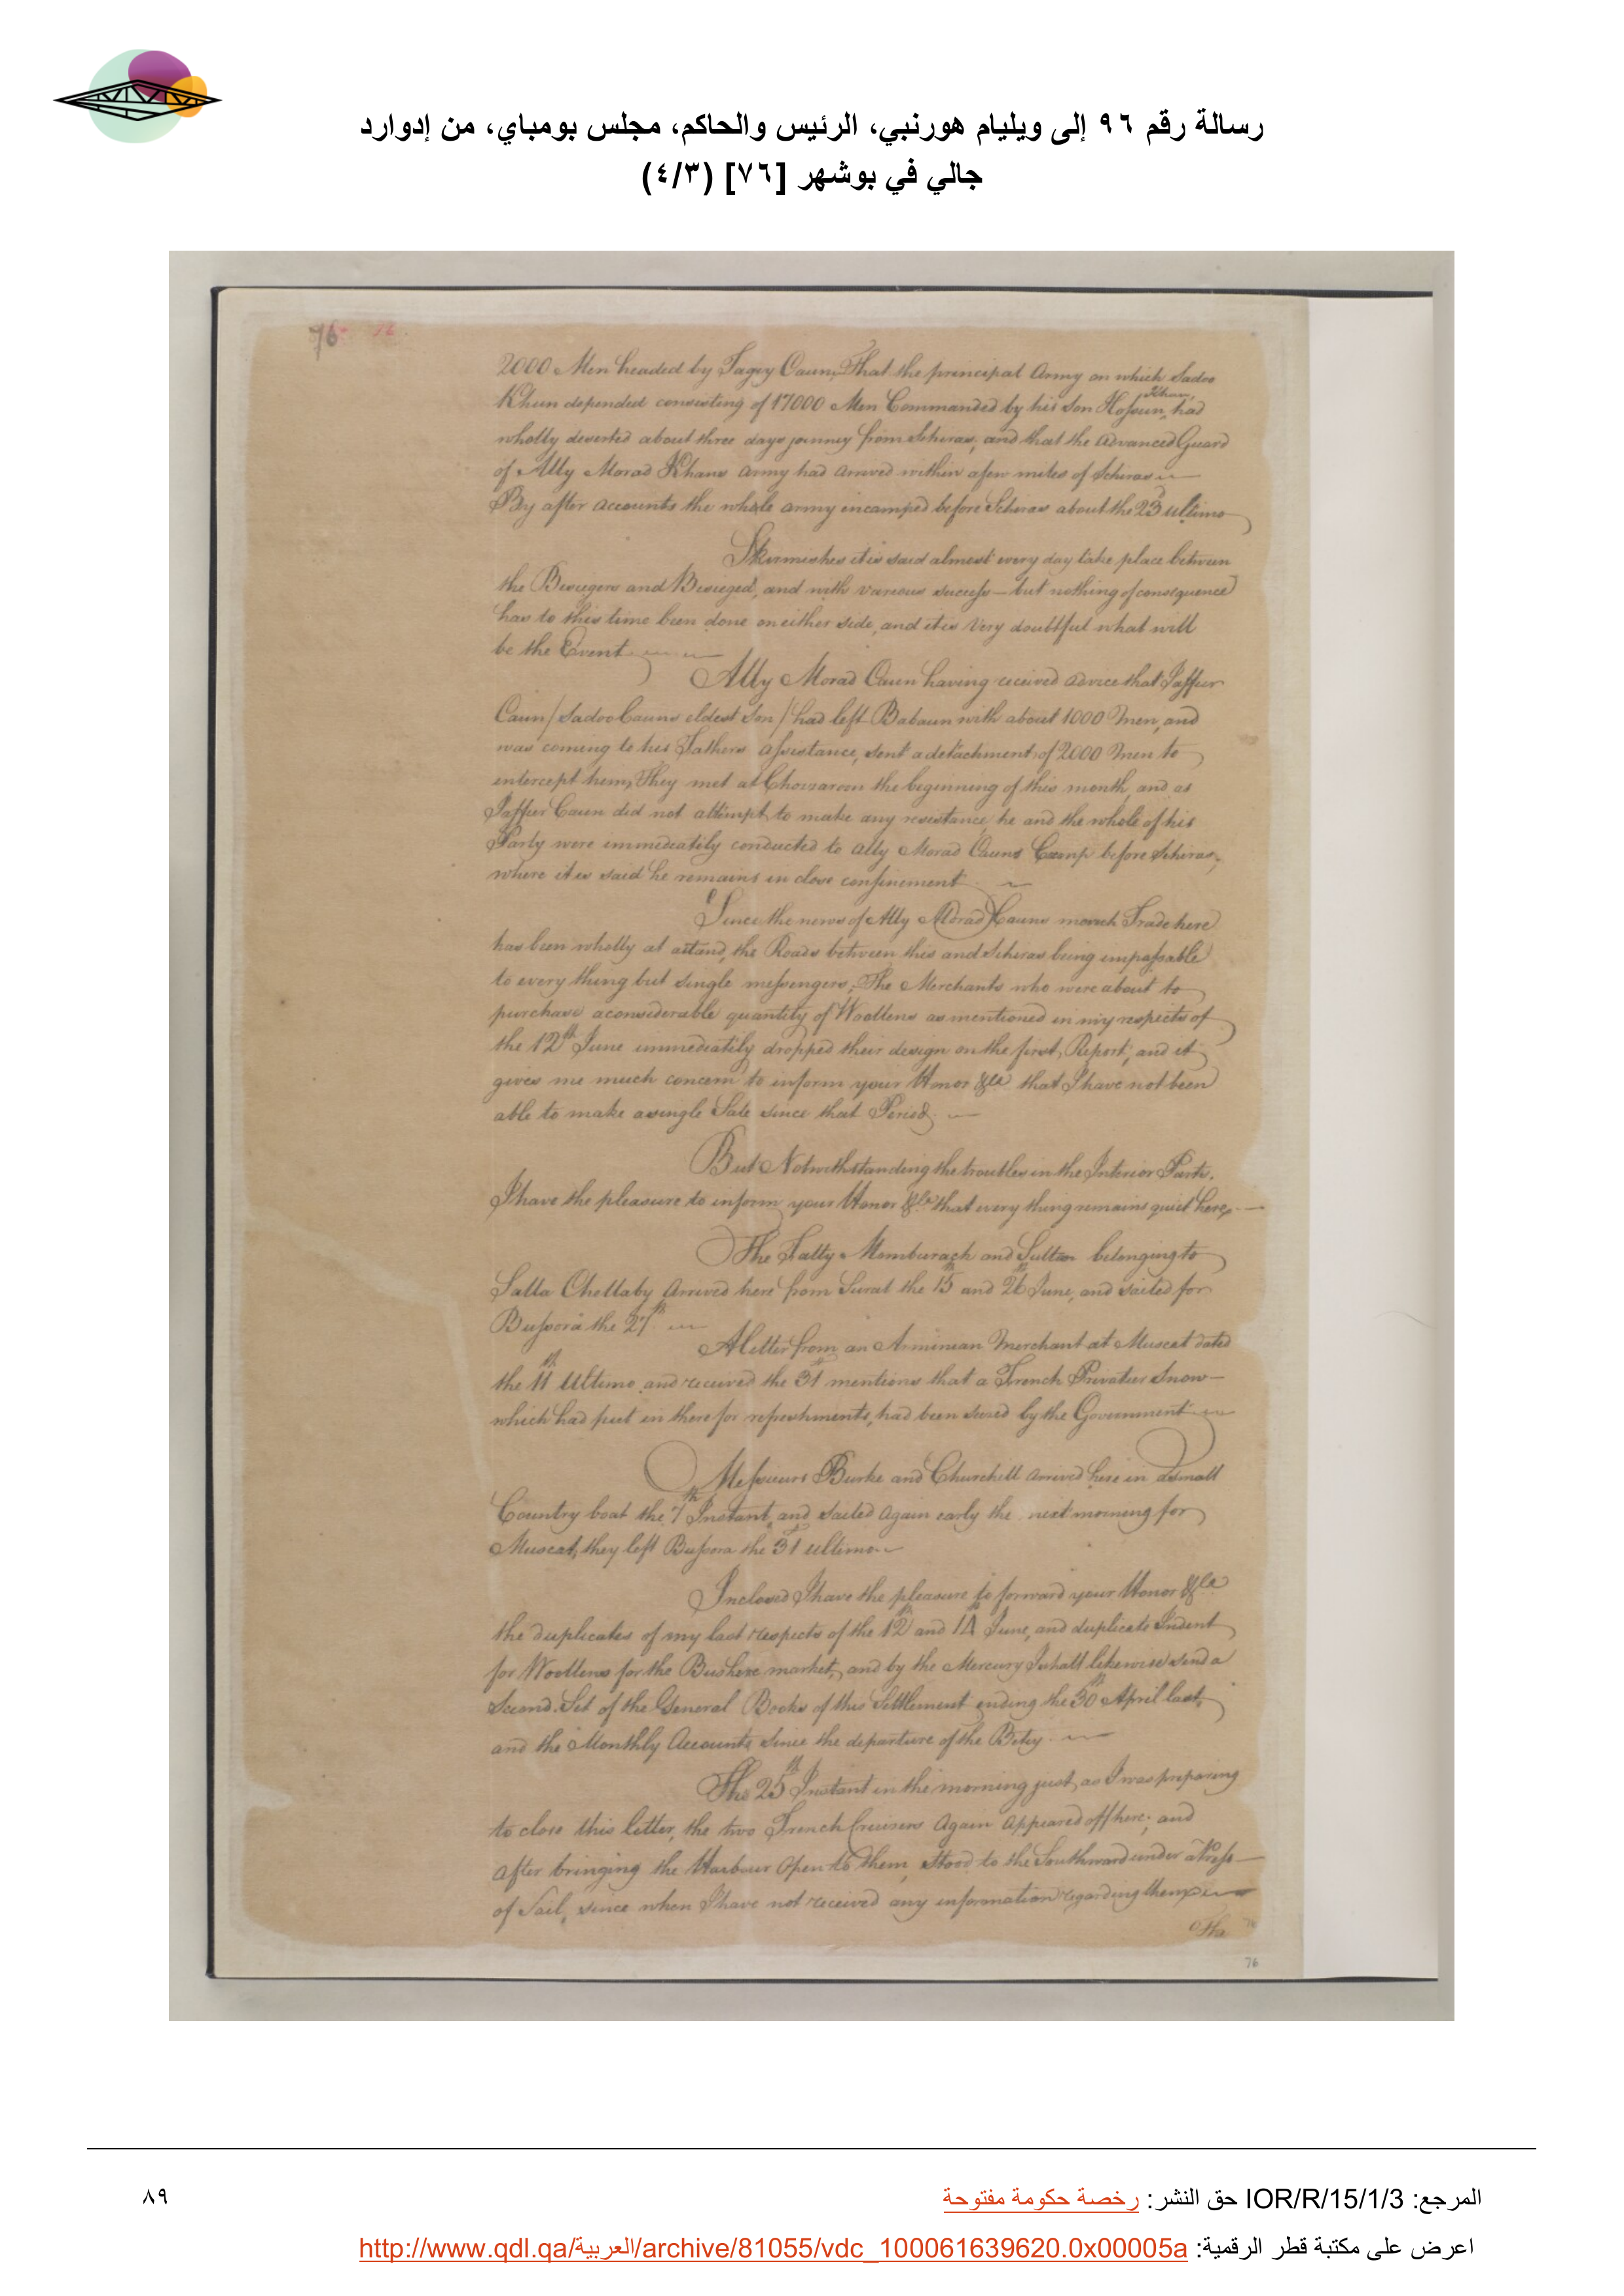 رسالة رقم ٩٦ إلى ويليام هورنبي، الرئيس والحاكم، مجلس بومباي، من إدوارد
جالي في بوشهر [٧٦] (٤/٣)
76 76
2000 Men headed by Tagey Caun, That the principal Army on which Sadoo
Khun depended consisting of 17000 Men Commanded by his Son Hossun Khan, had
wholly deserted about three days journey from Schiras, and that the Advanced Guard
of Ally Morad Khans Army had arrived within a few miles of Schiras
By after accounts the whole army encamped before Schiras about the 23 ultimo
Skirmishes it is said almost every day take place between
the Besiegers and Besieged, and with various success - but nothing of consequence
has to this time been done on either side, and it is Very doubtful what will
be the Event
Ally Morad Caun having received advice that Jaffier
Caun / Sadoo Cauns eldest Son / had left Babaun with about 1000 Men, and
was coming to his Fathers Assistance, sent a detachment of 2000 Men to
intercept them, They met at Chosaroon the beginning of this month, and as
Jaffier Caun did not attempt to make any resistance, he and the whole of his
Party were immediately conducted to Ally Morad Cauns Camp before Schiras,
where it is said he remains in close confinement
Since the news of Ally Morad Cauns march Trade here
has been wholly at a stand, the Roads between this and Schiras being impassable
to every thing but single messengers, The Merchants who were about to
purchase a considerable quantity of Woollens as mentioned in my respects of
the 12th June immediately dropped their design on the first Report, and it
gives me much concern to inform your Honor &ca that I have not been
able to make a single Sale since that Period.
But Notwithstanding the troubles in the Interior Parts,
I have the pleasure to inform your Honor &ca that every thing remains quiet here,
The Fatty Momburach and Sultan belonging to
Salla Chellaby Arrived here from Surat the 15 and 26th June, and sailed for
Bussora the 27th
A letter from an Arminian Merchant at Muscat dated
the 11th Ultimo and received the 31st mentions that a French Privatier Snow
which had put in there for refreshments, had been seized by the Government
Messieurs Burke and Churchill arrived here in a small
Country boat the 7th Instant, and sailed Again early the next morning for
Muscat, they left Bussora the 31st ultimo
Inclosed I have the pleasure to forward your Honor &ca
the duplicates of my last respects of the 12th and 14th June, and duplicate Indent
for Woollens for the Bushire market, and by the Mercury I shall likewise send a
Second Set of the General Books of this Settlement ending the 30th April last,
and the Monthly Accounts since the departure of the Betsy.
The 25th Instant in the morning just as I was preparing
to close this letter, the two French Cruisers Again Appeared off here; and
after bringing the Harbour Open to them, stood to the Southward under a Press
of Sail, since when I have not received any information regarding them
76
المرجع: IOR/R/15/1/3 حق النشر: رخصة حكومة مفتوحة
٨٩
اعرض على مكتبة قطر الرقمية: http://www.qdl.qa/العربية/archive/81055/vdc_100061639620.0x00005a